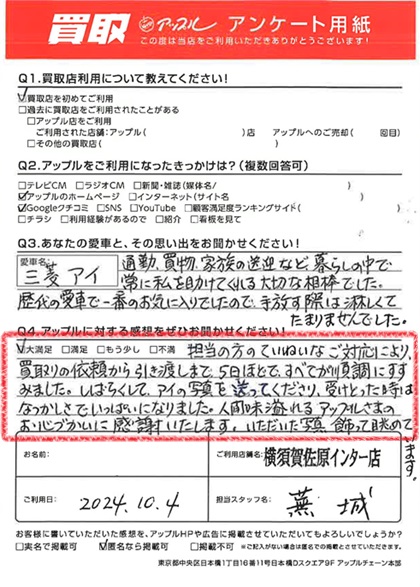 買取 アップル アンケート用紙
この度は当店をご利用いただきありがとうございます!
Q1.買取店利用について教えてください!
☑買取店を初めてご利用
□過去に買取店をご利用されたことがある
□アップル店をご利用
ご利用された店舗:アップル( )店 アップルへのご売却( 回目)
□その他の買取店( )
Q2.アップルをご利用になったきっかけは?(複数回答可)
□テレビCM □ラジオCM □新聞・雑誌(媒体名/ )
☑アップルのホームページ □インターネット(サイト名 )
☑Googleクチコミ □SNS □YouTube □顧客満足度ランキングサイト( )
□チラシ □利用経験があるので □紹介 □看板を見て
Q3.あなたの愛車と、その思い出をお聞かせください!
愛車名 三菱 アイ
通勤、買物、家族の送迎など、暮らしの中で
常に私を助けてくれる大切な相棒でした。
歴代の愛車で一番のお気に入りでしたので、手放す際は淋しくて
たまりませんでした。
Q4.アップルに対する感想をぜひお聞かせください!
☑大満足 □満足 □もう少し □不満 担当の方のていねいなご対応により、
買取りの依頼から引き渡しまで、5日ほどで、すべてが順調にす
みました。しばらくして、アイの写真を送ってくださり、受けとった時は
なつかしさでいっぱいになりました。人間味溢れるアップルさまの
お心づかいに感謝いたします。いただいた写真、飾って眺めて
います。
お名前:
ご利用店舗名: 横須賀佐原インター店
ご利用日: 2024.10.4
担当スタッフ名: 蕪城
お客様に書いていただいた感想を、アップルHPや広告に掲載させていただいてもよろしいでしょうか?
□実名で掲載可 ☑匿名なら掲載可 □掲載不可 ※ご記入がない場合は匿名での掲載とさせていただきます。
東京都中央区日本橋1丁目16番11号日本橋Dスクエア9F アップルチェーン本部